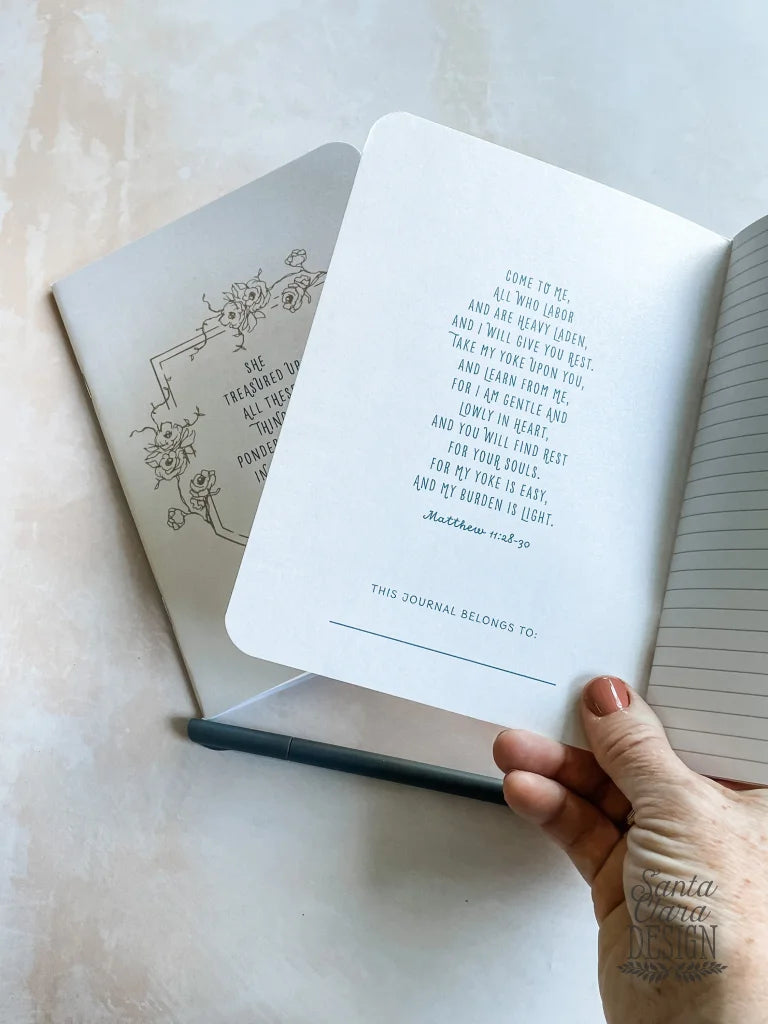 COME TO ME,
ALL WHO LABOR
AND ARE HEAVY LADEN,
AND I WILL GIVE YOU REST.
TAKE MY YOKE UPON YOU,
AND LEARN FROM ME,
FOR I AM GENTLE AND
LOWLY IN HEART,
AND YOU WILL FIND REST
FOR YOUR SOULS.
FOR MY YOKE IS EASY,
AND MY BURDEN IS LIGHT.
Matthew 11:28-30
THIS JOURNAL BELONGS TO:
SHE
TREASURED UP
ALL THESE
THING
PONDE
IN
Santa
Clara
DESIGN